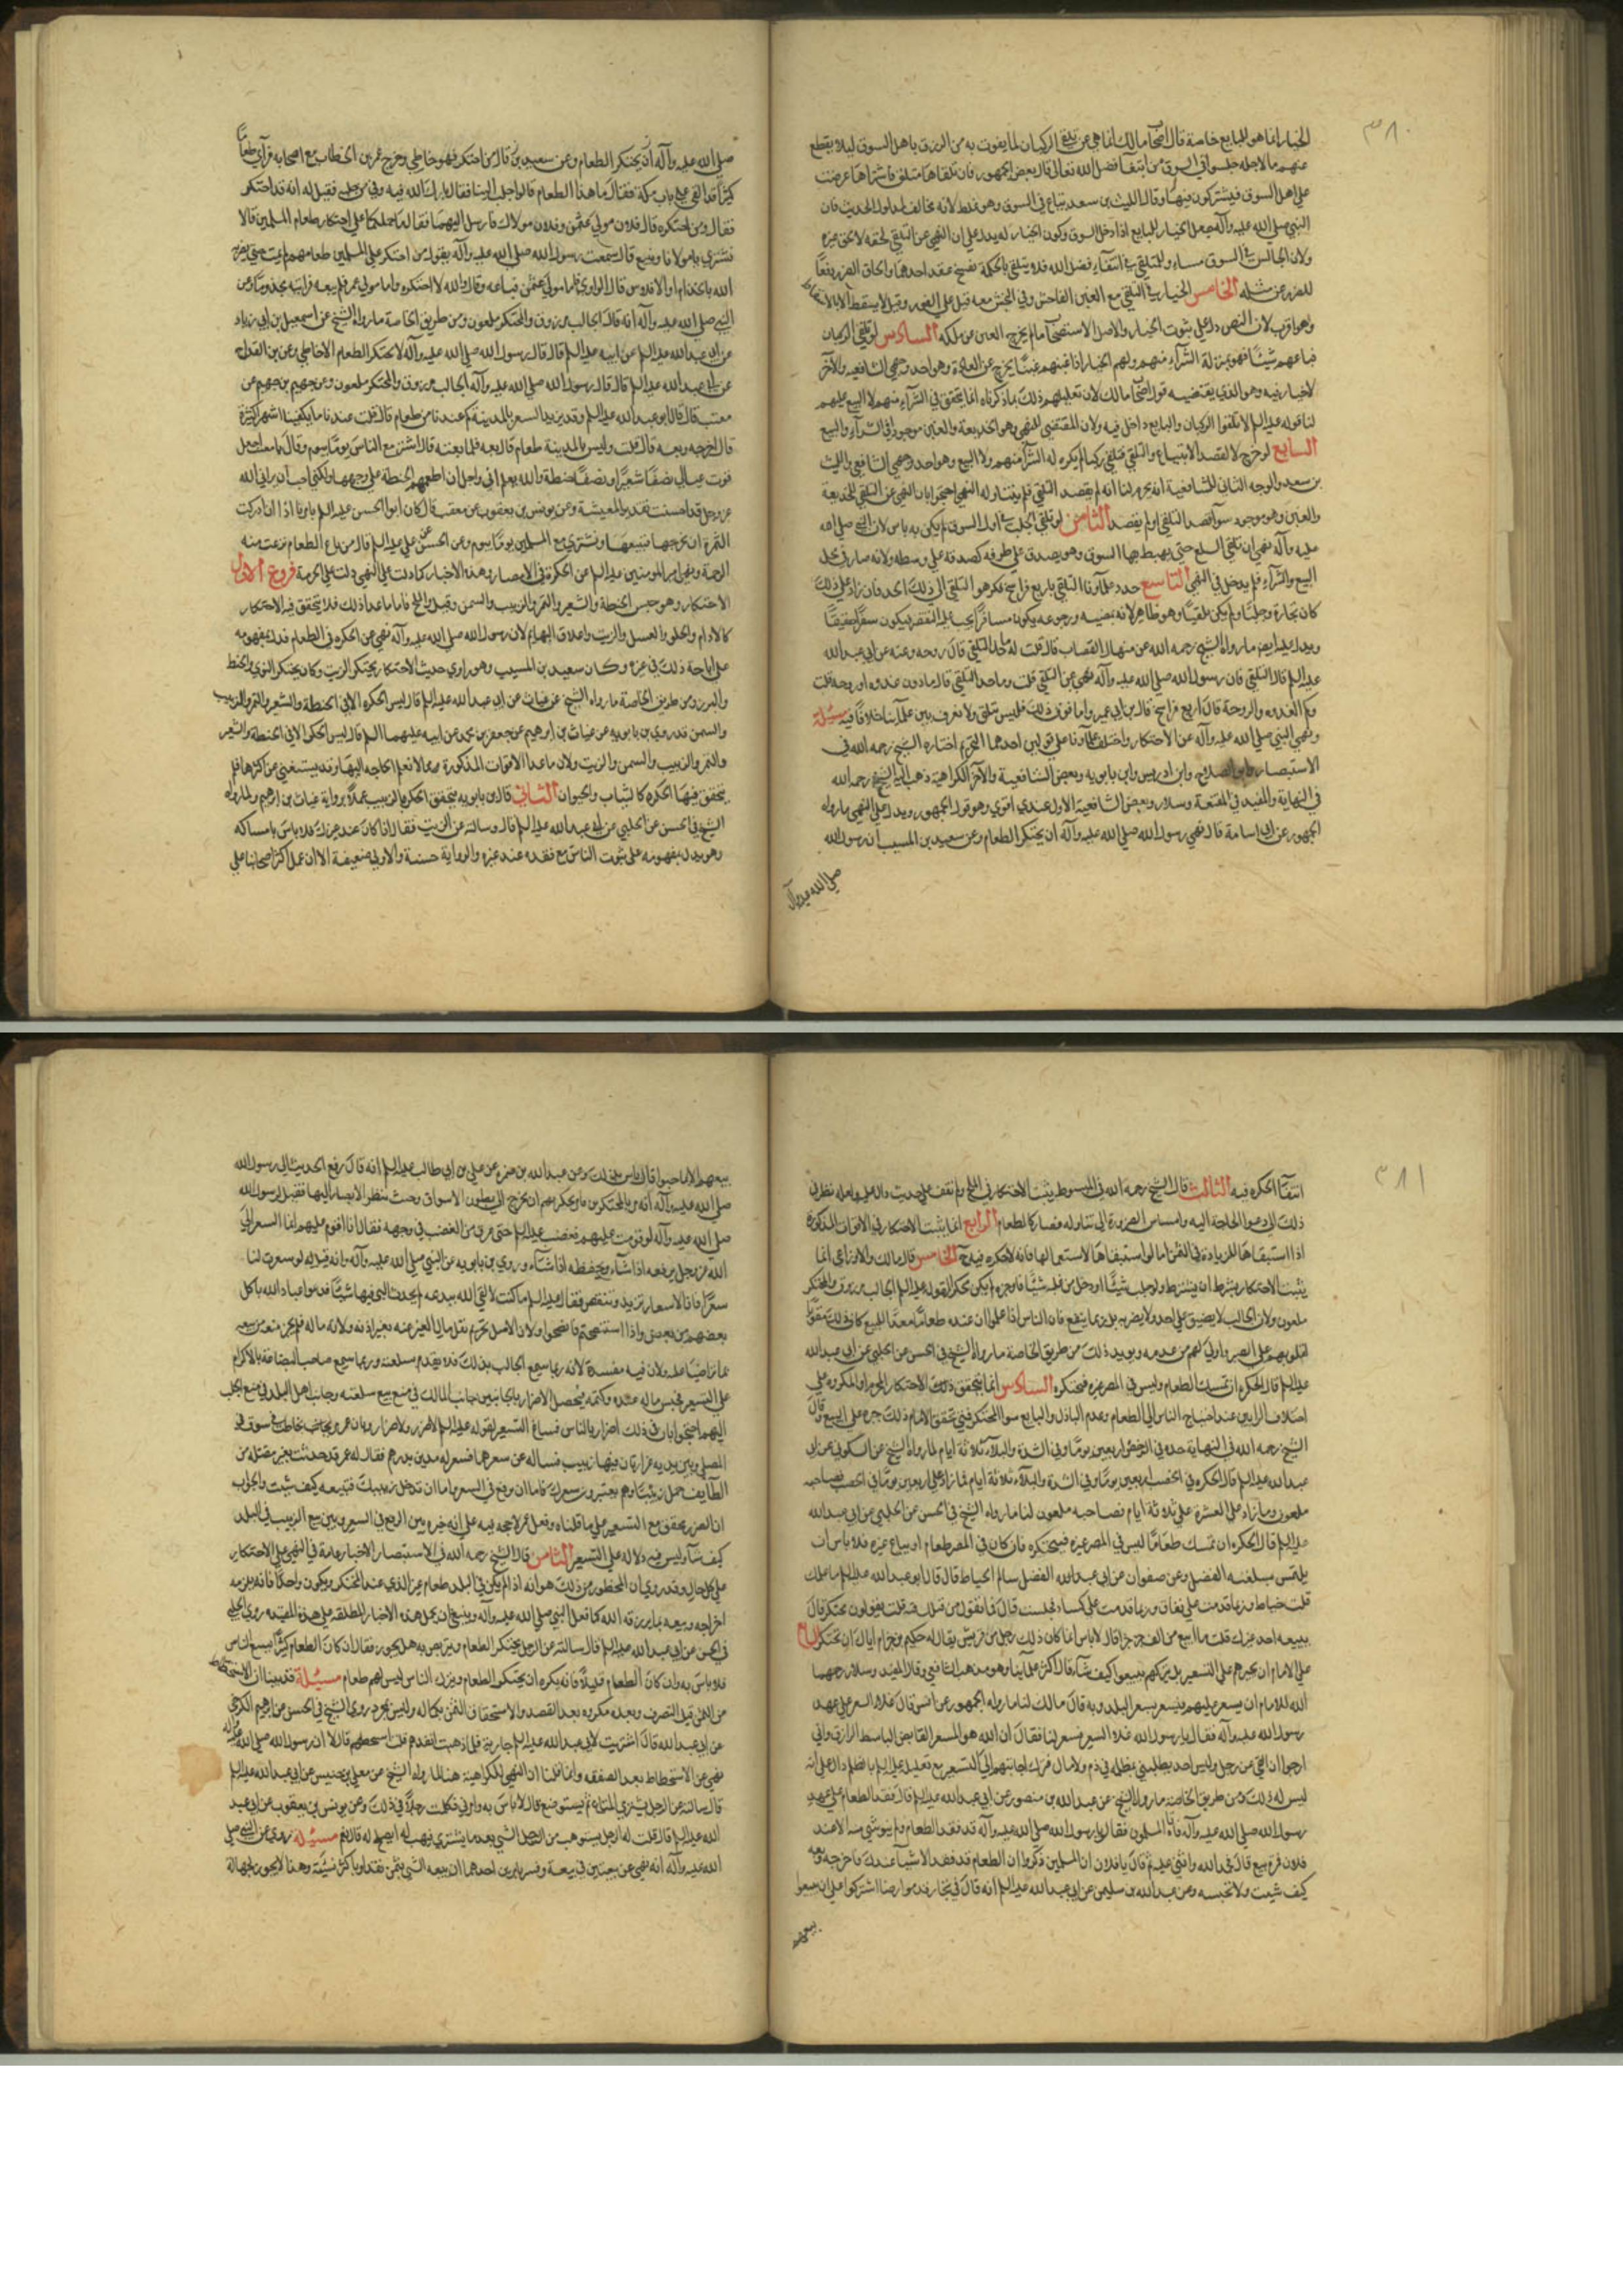 ٣٨٠
الخيار انما هو للبايع خاصة قال اصحاب مالك انما هي عن تلقي الركبان لما يفوت به من الرزق باهل السوق ليلا يقطع
عنهم ما لاجله جلسوا في السوق من ابتغا فضل الله تعالى قال بعض الجمهور فان تلقاها متلق فاشتراها عرضت
على اهل السوق فيشتركون فيها وقال الليث بن سعد تباع في السوق وهو غلط لانه مخالف لمدلول الحديث فان
النبي صلى الله عليه وآله جعل الخيار للبايع اذا دخل السوق وكون الخيار له يدل على ان النهي عن التلقي لحقه لا لحق غيره
ولان الجالس في السوق مساو للمتلقي في ابتغاء فضل الله فلا يليق بالحكمة فسخ عقد احدهما والحاق الضرر دفعا
للضرر عن مثله الخامس الخيار في التلقي مع الغبن الفاحش وفي النجش معه قيل على الفور وقيل لا يسقط الا بالاسقاط
وهو اقرب لان النص دل على ثبوت الخيار والاصل الاستصحاب ما لم يخرج العين عن ملكه السادس لو تلقى الركبان
فباعهم شيئا فهو بمنزلة الشراء منهم ولهم الخيار اذا غبنهم غبنا يخرج عن العادة وهو احد وجهي الشافعيه والآخر
لا خيار فيه وهو الذي يقتضيه قول اصحاب مالك لان تعليلهم ذلك بما ذكرناه انما يتحقق في الشراء منهم لا البيع عليهم
لنا قوله عليه السلم لا تلقوا الركبان والبايع داخل فيه ولان المقتضي للنهي وهو الخديعة والغبن موجود في الشراء والبيع
السابع لو خرج لا لقصد الابتياع والتلقي فتلقى ركبا لم يكره له الشراء منهم ولا البيع وهو احد وجهي الشافعي والليث
بن سعد والوجه الثاني للشافعية انه يحرم لنا انه لم يقصد التلقي فلم يتناوله النهي احتجوا بان النهي عن التلقي للخديعة
والغبن وهو موجود سوا قصد التلقي او لم يقصد الثامن لو تلقى الجلب في اول السوق لم يكن به باس لان النبي صلى الله
عليه وآله نهى ان تتلقى السلع حتى يهبط بها السوق وهو يصدق على طرفه كصدقه على وسطه ولانه صار في محل
البيع والشراء فلم يدخل في النهي التاسع حدد علماؤنا التلقي باربع فراسخ فكرهوا التلقي الى ذلك الحد فان زاد على ذلك
كان تجارة وجلبا ولم يكن تلقيا وهو ظاهر لانه بمضيه ورجوعه يكون مسافرا يجب عليه التقصير فيكون سفرا حقيقيا
ويدل عليه ايضا ما رواه الشيخ رحمه الله عن منهال القصاب قال قلت له ما حد التلقي قال روحه وعنه عن ابي عبد الله
عليه السلم قال لا تلق فان رسول الله صلى الله عليه وآله نهى عن التلقي قلت وما حد التلقي قال ما دون غدوه او روحه قلت
وكم الغدوه والروحة قال اربع فراسخ قال بن ابي عمير وما فوق ذلك فليس بتلق ولا نعرف بين علمائنا خلافا فيه مسئلة
ونهى النبي صلى الله عليه وآله عن الاحتكار واختلف علماؤنا على قولين احدهما التحريم اختاره الشيخ رحمه الله في
الاستبصار وابو الصلاح وابن ادريس وابن بابويه وبعض الشافعية والآخر الكراهية ذهب اليه الشيخ رحمه الله
في النهاية والمفيد في المقنعة وسلار وبعض الشافعية الاول عندي اقوى وهو قول الجمهور ويدل على النهي ما رواه
الجمهور عن ابي اسامة قال نهى رسول الله صلى الله عليه وآله ان يحتكر الطعام وعن سعيد بن المسيب ان رسول الله
صلى الله عليه وآله
صلى الله عليه وآله ان يحتكر الطعام وعن سعيد بن قال من احتكر فهو خاطي وخرج عمر بن الخطاب مع اصحابه فرأى طعاما
كثيرا قد القي على باب مكة فقال ما هذا الطعام قالوا جلب الينا فقال بارك الله فيه وفي من جلبه فقيل له انه قد احتكر
فقال ومن احتكره قال فلان مولى عثمن وفلان مولاك فارسل اليهما فقال ما حملكما على احتكار طعام المسلمين قالا
نشتري باموالنا ونبيع قال سمعت رسول الله صلى الله عليه وآله يقول من احتكر على المسلمين طعامهم لم يمت حتى يضربه
الله بالجذام او الافلاس قال الراوي فاما مولى عثمن فباعه وقال والله لا احتكره واما مولى عمر فلم يبعه فرايته مجذوما وعن
النبي صلى الله عليه وآله انه قال الجالب مرزوق والمحتكر ملعون ومن طريق الخاصة ما رواه الشيخ عن اسمعيل بن ابي زياد
عن ابي عبد الله عليه السلم عن ابيه عليه السلم قال قال رسول الله صلى الله عليه وآله لا يحتكر الطعام الا خاطي وعن بن القداح
عن ابي عبد الله عليه السلم قال قال رسول الله صلى الله عليه وآله الجالب مرزوق والمحتكر ملعون وعن جهم بن جهم عن
معتب قال قال ابو عبد الله عليه السلم وقد يزيد السعر بالمدينة كم عندنا من طعام قال قلت عندنا ما يكفينا اشهر كثيرة
قال اخرجه وبعه قال قلت وليس بالمدينة طعام قال بعه فلما بعته قال اشتر مع الناس يوما بيوم وقال يا معتب اجعل
قوت عيالي نصفا شعيرا ونصفا حنطة والله يعلم اني واجد ان اطعمهم الحنطة على وجهها ولكني احب ان يراني الله
عز وجل قد احسنت تقدير المعيشة وعن يونس بن يعقوب عن معتب قال كان ابو الحسن عليه السلم يامرنا اذا ادركت
الثمرة ان نخرجها فنبيعها ونشتري مع المسلمين يوما بيوم وعن الحسن عن علي عليه السلم قال من باع الطعام نزعت منه
الرحمة ونهى امير المومنين عليه السلم عن الحكرة في الامصار وهذه الاخبار كما دلت على النهي دلت على الحرمة فروع الاول
الاحتكار وهو حبس الحنطة والشعير والتمر والزبيب والسمن وقيل والملح فاما ما عدا ذلك فلا يتحقق فيه الاحتكار
كالادام والحلوى والعسل والزيت واعلاف البهايم لان رسول الله صلى الله عليه وآله نهى عن الحكره في الطعام فدل بمفهومه
على اباحة ذلك في غيره وكان سعيد بن المسيب وهو راوي حديث الاحتكار يحتكر الزيت وكان يحتكر النوى والخبط
والبزر ومن طريق الخاصة ما رواه الشيخ عن غياث عن ابي عبد الله عليه السلم قال ليس الحكره الا في الحنطة والشعير والتمر والزبيب
والسمن وقد روى بن بابويه عن غياث بن ابرهيم عن جعفر بن محمد عن ابيه عليهما السلم قال ليس الحكره الا في الحنطة والشعير
والتمر والزبيب والسمن والزيت ولان ما عدا الاقوات المذكورة مما لا تعم الحاجه اليها وقد يستغني عن اكثرها فلم
يتحقق فيها الحكره كالثياب والحيوان الثاني قال بن بابويه يتحقق الحكره بالزبيب عملا برواية غياث بن ابرهيم ولما رواه
الشيخ في الحسن عن الحلبي عن ابي عبد الله عليه السلم قال وسالته عن الزيت فقال اذا كان عند غيرك فلا باس بامساكه
وهو يدل بمفهومه على ثبوت الباس مع فقده عند غيره والرواية حسنة والاولى ضعيفة الا ان عمل اكثر اصحابنا على
٣٨١
انتفاء الحكره فيه الثالث قال الشيخ رحمه الله في المبسوط يثبت الاحتكار في الملح ولم نقف على حديث دال عليه ولعله نظر في
ذلك الى دعوا الحاجة اليه وامساس الضرورة الى تناوله فصار كالطعام الرابع انما يثبت الاحتكار في الاقوات المذكورة
اذا استبقاها للزيادة في الثمن اما لو استبقاها لاستعمالها فانه لا حكره فيه الخامس قال مالك والاوزاعي انما
يثبت الاحتكار بشرط ان يشتري ولو جلب شيئا او دخل من غلته شيئا فادخره لم يكن محتكرا لقوله عليه السلم الجالب مرزوق والمحتكر
ملعون ولان الجالب لا يضيق على احد ولا يضر به بل ربما ينفع فان الناس اذا علموا ان عنده طعاما معدا للبيع كان ذلك مقويا
لقلوبهم على الصبر واولى لهم من عدمه ويويد ذلك من طريق الخاصة ما رواه الشيخ في الحسن عن الحلبي عن ابي عبد الله
عليه السلم قال الحكره ان تمسك الطعام وليس في المصر غيره فتحتكره السادس انما يتحقق ذلك الاحتكار المحرم او المكروه على
اختلاف الرايين عند احتياج الناس الى الطعام وعدم الباذل والبايع سوا المحتكر فمتى تحقق الامام ذلك جبره على البيع وقال
الشيخ رحمه الله في النهاية حده في الرخص اربعين يوما وفي الشدة والبلاء ثلاثة ايام لما رواه الشيخ عن السكوني عن ابي
عبد الله عليه السلم قال الحكره في الخصب اربعين يوما وفي الشدة والبلاء ثلاثة ايام فما زاد على اربعين يوما في الخصب فصاحبه
ملعون وما زاد على العسرة على ثلاثة ايام فصاحبه ملعون لنا ما رواه الشيخ في الحسن عن الحلبي عن ابي عبد الله
عليه السلم قال الحكره ان تمسك طعاما ليس في المصر غيره فتحتكره فان كان في المصر طعام او يباع غيره فلا باس ان
يلتمس بسلعته الفضل وعن صفوان عن ابي عبد الله الفضل سالم الحناط قال قال ابو عبد الله عليه السلم ما عملك
قلت حناط وربما قدمت على نفاق وربما قدمت على كساد فحبست قال فما يقول من قبلك فيه قلت يقولون محتكر قال
يبيعه احد غيرك قلت ما ابيع من الف جزء جزءا قال لا باس انما كان ذلك رجل من قريش يقال له حكيم بن حزام اياك ان تحتكر السابع
على الامام ان يجبرهم على التسعير بل يتركهم يبيعوا كيف شاء قال اكثر علمائنا وهو مذهب الشافعي وقال المفيد وسلار رحمهما
الله للامام ان يسعر عليهم فيسعر بسعر البلد وبه قال مالك لنا ما رواه الجمهور عن انس قال غلا السعر على عهد
رسول الله عليه وآله فقال يا رسول الله غلا السعر فسعر لنا فقال ان الله هو المسعر القابض الباسط الرازق واني
ارجوا ان القى عن رجل وليس احد يطلبني بمظلمه في دم ولا مال فترك اجابتهم الى التسعير مع تعليله عليه السلم بالظلم دال على انه
ليس له ذلك ومن طريق الخاصة ما رواه الشيخ عن عبد الله بن منصور عن ابي عبد الله عليه السلم قال نفد الطعام على عهد
رسول الله صلى الله عليه وآله فاتاه المسلمون فقالوا يا رسول الله صلى الله عليه وآله قد نفد الطعام ولم يبق شي منه الا عند
فلان فمره يبيع قال فحمد الله واثنى عليه ثم قال يا فلان ان المسلمين ذكروا ان الطعام قد نفد الا شيا عندك فاخرجه وبعه
كيف شيت ولا تحبسه وعن عبد الله بن سليمن عن ابي عبد الله عليه السلم انه قال في تجار قدموا ارضا اشتركوا على ان لا يبيعوا
بيعهم
بيعهم الا بما احبوا قال لا باس بذلك وعن عبد الله بن ضمره عن علي بن ابي طالب عليه السلم انه قال رفع الحديث الى رسول الله
صلى الله عليه وآله انه مر بالمحتكرين فامر بحكرتهم ان تخرج الى بطون الاسواق وحيث تنظر الابصار اليها فقيل لرسول الله
صلى الله عليه وآله لو قومت عليهم فغضب عليه السلم حتى عرف الغضب في وجهه فقال انا اقوم عليهم انما السعر الى
الله عز وجل يرفعه اذا شاء ويخفضه اذا شاء وروى بن بابويه عن النبي صلى الله عليه وآله وانه قيل له لو سعرت لنا
سعرا فان الاسعار تزيد وتنقص فقال عليه السلم ما كنت لالقى الله ببدعه لم يحدث الي فيها شيئا فدعوا عباد الله ياكل
بعضهم من بعض واذا استنصحتم فانصحوا ولان الاصل تحريم نقل مال الغير عنه بغير اذنه ولانه ماله فلم يجز منعه من بيعه
بما تراضيا عليه ولان فيه مفسدة لانه ربما سمع الجالب بذلك فلا يقدم بسلعته وربما سمع صاحب البضاعة بالاكراه
على التسعير فحبس ماله عنده وكتمه فيحصل الاضرار بالجانبين جانب المالك في منع بيع سلعته وجانب اهل البلد في منع الجلب
اليهم احتجوا بان في ذلك اضرار بالناس فساغ التسعير لقوله عليه السلم لا ضرر ولا ضرار وبان عمر مر بحاطب في سوق
المصلى وبين يديه غرارتان فيهما زبيب فساله عن سعرهما فسعر له مدين بدرهم فقال له عمر قد حدثت بعير مقبلة من
الطايف تحمل زبيبا وهم يعتبرون بسعرك فاما ان ترفع في السعر واما ان تدخل زبيبك فتبيعه كيف شيت والجواب
ان الضرر يتحقق مع التسعير على ما قلناه وفعل عمر لا حجه فيه على انه خيره بين الرفع في السعر وبين بيع الزبيب في البلد
كيف شاء وليس فيه دلاله على التسعير الثامن قال الشيخ رحمه الله في الاستبصار الاخبار عامة في النهي على الاحتكار
على كل حال وقد روي ان المحظور من ذلك هو انه اذا لم يكن في البلد طعام غير الذي عند المحتكر ويكون واحدا فانه يلزمه
اخراجه وبيعه بما يرزقه الله كما فعل النبي صلى الله عليه وآله وينبغي ان يحمل هذه الاخبار المطلقه على هذه المقيده روى الحلبي
في الحسن عن ابي عبد الله عليه السلم قال سالته عن الرجل يحتكر الطعام ويتربص به هل يجوز فقال ان كان الطعام كثيرا يسع الناس
فلا باس به وان كان الطعام قليلا فانه يكره ان يحتكر الطعام ويترك الناس ليس لهم طعام مسئلة قد بينا ان الاستحطاط
من الثمن قبل التصرف وبعده مكروه بعد العقد والاستحقاق الثمن بكماله وليس بمحرم روى الشيخ في الحسن عن ابرهيم الكرخي
عن ابي عبد الله قال اشتريت لابي عبد الله عليه السلم جارية فلما ذهبت انقدهم قلت استحطهم قال لا ان رسول الله صلى الله عليه وآله
نهى عن الاستحطاط بعد الصفقه وانما قلنا ان النهي للكراهية هنا لما رواه الشيخ عن معلى بن خنيس عن ابي عبد الله عليه السلم
قال سالته عن الرجل يشتري المتاع ثم يستوضع قال لا باس به وامرني فكلمت رجلا في ذلك وعن يونس بن يعقوب عن ابي عبد
الله عليه السلم قال قلت له الرجل يستوهب من الرجل الشي بعد ما يشتري فيهب له ايصلح له قال نعم مسئلة روي عن النبي صلى
الله عليه وآله انه نهى عن بيعتين في بيعة وفسر بامرين احدهما ان يبيعه الشي بثمن نقدا وباكثر نسيئة وهذا لا يجوز لجهالة